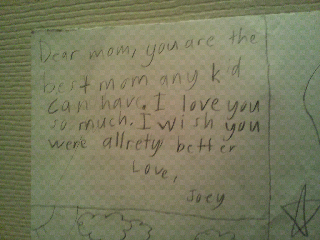 Dear mom, you are the
best mom any kid
can have. I love you
so much. I wish you
were allrety better
Love,
Joey